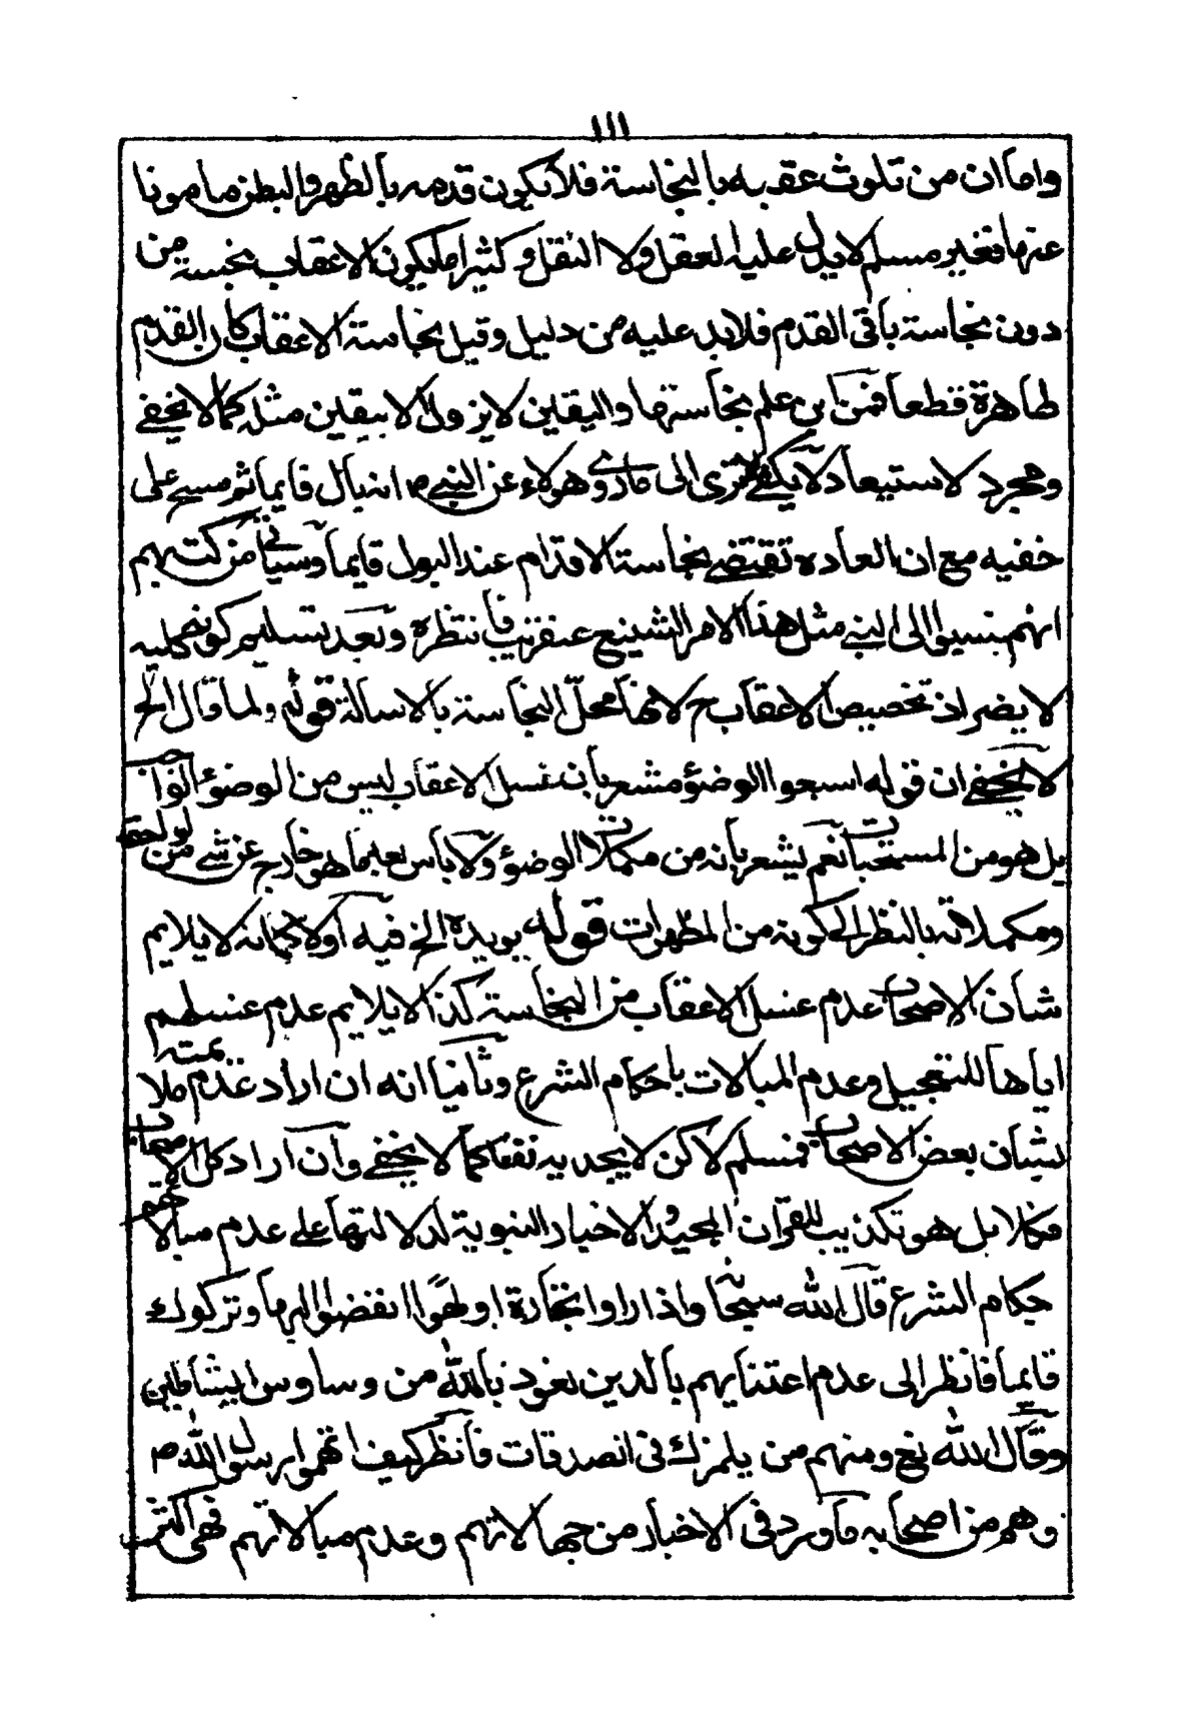 ١١١
واما ان من تلوث عقبه بالنجاسة فلا يكون قدمه بالظهر والبطن مامونا
عنها فغير مسلم لا يدل عليه العقل ولا النقل وكثيرا ما يكون الاعقاب نجسة من
دون نجاسة باقى القدم فلا بد عليه من دليل وقبل نجاسة الاعقاب كان القدم
طاهرة قطعا فمن اين علم نجاستها واليقين لا يزول الا بيقين مثله كما لا يخفى
ومجرد الاستبعاد لا يكفى الا ترى الى ما روى هولاء عن النبي ص انه بال قايما ثم مسح على
خفيه مع ان العادة تقتضي نجاسة الاقدام عند البول قايما وسياتي من كتبهم
انهم نسبوا الى النبي مثل هذا الامر الشنيع عنقريب فانتظره وبعد تسليم كونه كلية
لا يضر اذ تخصيص الاعقاب ح لانها محل النجاسة بالاسالة قوله ولما قال الخ
لا يخفى ان قوله اسبغوا الوضوء مشعر بان غسل الاعقاب ليس من الوضوء
بل هو من المستحبات نعم يشعر بانه من مكملات الوضوء ولا باس بعد بما هو خارج عن شي من لواحقه
ومكملاته بالنظر الى كونه من المطهرات قوله يويده الخ فيه اولا كما انه لا يلايم
شان الاصحاب عدم غسل الاعقاب من النجاسة كذا لا يلايم عدم غسلهم
اياها للتعجيل وعدم المبالات باحكام الشرع وثانيا انه ان اراد عدم ملايمته
بشان بعض الاصحاب فمسلم لا كن لا يجديه نفعا كما لا يخفى وان اراد كل الاصحاب
فكلا بل هو تكذيب للقرآن المجيد والاخبار النبوية لدلالتها على عدم مبالاتهم
حكام الشرع قال الله سبحانه واذا راوا تجارة او لهوا انفضوا اليها وتركوك
قايما فانظر الى عدم اعتنايهم بالدين نعوذ بالله من وساوس الشياطين
وقال الله تع ومنهم من يلمزك فى الصدقات فانظر كيف اتهموا رسول الله ص
وهم من اصحابه وما ورد فى الاخبار من جهالاتهم وعدم مبالاتهم فهى اكثر